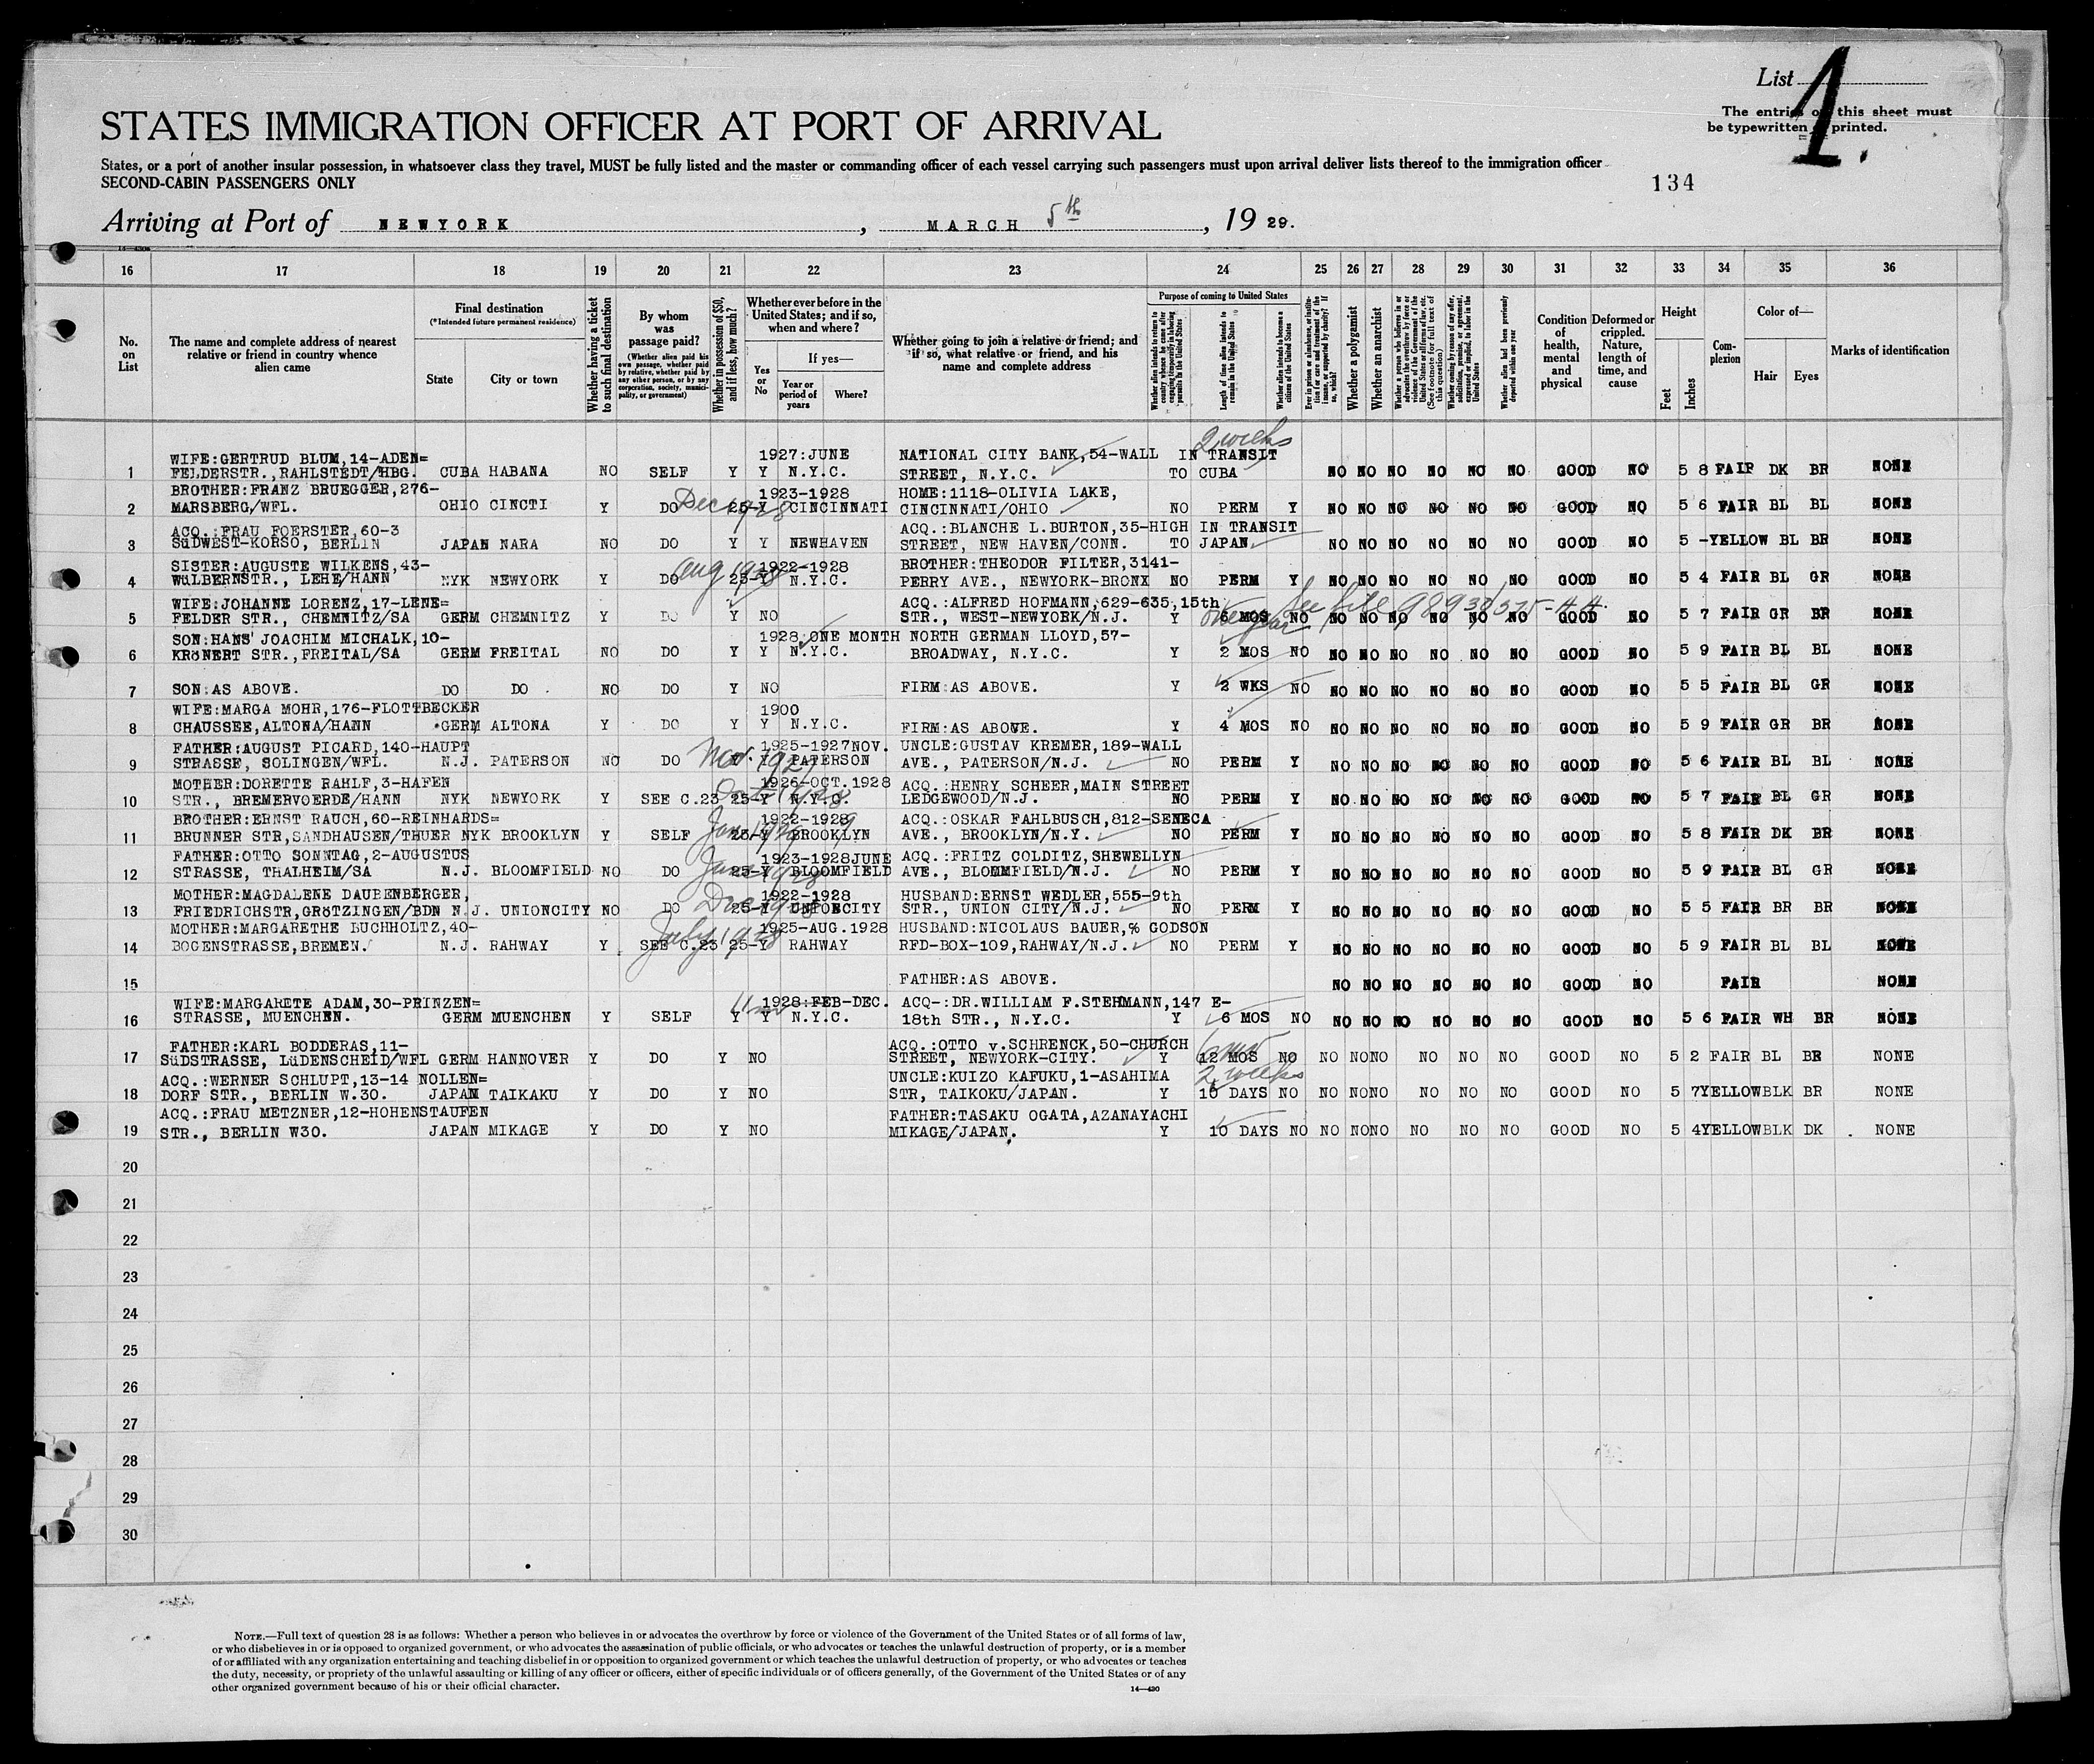 List 1.
The entries on this sheet must
be typewritten or printed.
STATES IMMIGRATION OFFICER AT PORT OF ARRIVAL
States, or a port of another insular possession, in whatsoever class they travel, MUST be fully listed and the master or commanding officer of each vessel carrying such passengers must upon arrival deliver lists thereof to the immigration officer
SECOND-CABIN PASSENGERS ONLY
134
Arriving at Port of NEWYORK, MARCH 5th, 19 29.
16 17 18 19 20 21 22 23 24 25 26 27 28 29 30 31 32 33 34 35 36
No. on List
The name and complete address of nearest relative or friend in country whence alien came
Final destination
(*Intended future permanent residence)
State
City or town
Whether having a ticket to such final destination
By whom was passage paid?
(Whether alien paid his own passage, whether paid by relative, whether paid by any other person, or by any corporation, society, municipality, or government)
Whether in possession of $50, and if less, how much?
Whether ever before in the United States; and if so, when and where?
Yes or No
If yes—
Year or period of years
Where?
Whether going to join a relative or friend; and if so, what relative or friend, and his name and complete address
Purpose of coming to United States
Length of time alien intends to remain in the United States
Whether alien intends to become a citizen of the United States
Whether a polygamist
Whether an anarchist
Condition of health, mental and physical
Deformed or crippled. Nature, length of time, and cause
Height
Feet
Inches
Complexion
Color of—
Hair
Eyes
Marks of identification
2 weeks
WIFE:GERTRUD BLUM,14-ADEN= 1927:JUNE NATIONAL CITY BANK,54-WALL IN TRANSIT
1 FELDERSTR.,RAHLSTEDT/HBG. CUBA HABANA NO SELF Y Y N.Y.C. STREET, N.Y.C. TO CUBA NO NO NO NO NO NO GOOD NO 5 8 FAIR DK BR NONE
BROTHER:FRANZ BRUEGGER,276- 1923-1928 HOME:1118-OLIVIA LAKE,
2 MARSBERG/WFL. OHIO CINCTI Y DO Dec 1928 25-Y CINCINNATI CINCINNATI/OHIO NO PERM Y NO NO NO NO NO NO GOOD NO 5 6 FAIR BL BL NONE
ACQ.:FRAU FOERSTER,60-3 ACQ.:BLANCHE L.BURTON,35-HIGH IN TRANSIT
3 SüDWEST-KORSO, BERLIN JAPAN NARA NO DO Y Y NEWHAVEN STREET, NEW HAVEN/CONN. TO JAPAN NO NO NO NO NO NO GOOD NO 5 -YELLOW BL BR NONE
SISTER:AUGUSTE WILKENS,43- 1922-1928 BROTHER:THEODOR FILTER,3141-
4 WüLBERNSTR., LEHE/HANN NYK NEWYORK Y DO Aug 1928 25-Y N.Y.C. PERRY AVE., NEWYORK-BRONX NO PERM Y NO NO NO NO NO NO GOOD NO 5 4 FAIR BL GR NONE
WIFE:JOHANNE LORENZ,17-LENE= ACQ.:ALFRED HOFMANN,629-635,15th See file 98938/375-A.A.
5 FELDER STR., CHEMNITZ/SA GERM CHEMNITZ Y DO Y NO STR., WEST-NEWYORK/N.J. Y 6 MOS one year NO NO NO NO NO NO NO GOOD NO 5 7 FAIR GR BR NONE
SON:HANS JOACHIM MICHALK,10- 1928,ONE MONTH NORTH GERMAN LLOYD,57-
6 KRöNERT STR.,FREITAL/SA GERM FREITAL NO DO Y Y N.Y.C. BROADWAY, N.Y.C. Y 2 MOS NO NO NO NO NO NO NO GOOD NO 5 9 FAIR BL BL NONE
7 SON:AS ABOVE. DO DO. NO DO Y NO FIRM:AS ABOVE. Y 2 WKS NO NO NO NO NO NO NO GOOD NO 5 5 FAIR BL GR NONE
WIFE:MARGA MOHR,176-FLOTTBECKER 1900
8 CHAUSSEE,ALTONA/HANN GERM ALTONA Y DO Y Y N.Y.C. FIRM:AS ABOVE. Y 4 MOS NO NO NO NO NO NO NO GOOD NO 5 9 FAIR GR BR NONE
FATHER:AUGUST PICARD,140-HAUPT 1925-1927NOV. UNCLE:GUSTAV KREMER,189-WALL
9 STRASSE, SOLINGEN/WFL. N.J. PATERSON NO DO Nov. 1927 Y PATERSON AVE., PATERSON/N.J. NO PERM Y NO NO NO NO NO NO GOOD NO 5 6 FAIR BL BL NONE
MOTHER:DORETTE RAHLF,3-HAFEN 1926-OCT.1928 ACQ.:HENRY SCHEER,MAIN STREET
10 STR., BREMERVOERDE/HANN NYK NEWYORK Y SEE C.23 Oct 1928 25-Y N.Y.C. LEDGEWOOD/N.J. NO PERM Y NO NO NO NO NO NO GOOD NO 5 7 FAIR BL GR NONE
BROTHER:ERNST RAUCH,60-REINHARDS= 1922-1929 ACQ.:OSKAR FAHLBUSCH,812-SENECA
11 BRUNNER STR,SANDHAUSEN/THUER NYK BROOKLYN Y SELF Jan 1929 25-Y BROOKLYN AVE., BROOKLYN/N.Y. NO PERM Y NO NO NO NO NO NO GOOD NO 5 8 FAIR DK BR NONE
FATHER:OTTO SONNTAG,2-AUGUSTUS 1923-1928JUNE ACQ.:FRITZ COLDITZ,SHEWELLYN
12 STRASSE, THALHEIM/SA N.J. BLOOMFIELD NO DO June 1928 25-Y BLOOMFIELD AVE., BLOMMFIELD/N.J. NO PERM Y NO NO NO NO NO NO GOOD NO 5 9 FAIR BL GR NONE
MOTHER:MAGDALENE DAUBENBERGER, 1922-1928 HUSBAND:ERNST WEDLER,555-9th
13 FRIEDRICHSTR,GRöTZINGEN/BDN N.J. UNIONCITY NO DO Dec 1928 25-Y UNIONCITY STR., UNION CITY/N.J. NO PERM Y NO NO NO NO NO NO GOOD NO 5 5 FAIR BR BR NONE
MOTHER:MARGARETHE BUCHHOLTZ,40- 1925-AUG.1928 HUSBAND:NICOLAUS BAUER,% GODSON
14 BOGENSTRASSE,BREMEN. N.J. RAHWAY Y SEE C.23 July 1928 25-Y RAHWAY RFD-BOX-109,RAHWAY/N.J. NO PERM Y NO NO NO NO NO NO GOOD NO 5 9 FAIR BL BL NONE
15 FATHER:AS ABOVE. NO NO NO NO NO NO GOOD NO FAIR NONE
WIFE:MARGARETE ADAM,30-PRINZEN= 1928:FEB-DEC. ACQ-:DR.WILLIAM F.STEHMANN,147 E-
16 STRASSE, MUENCHEN. GERM MUENCHEN Y SELF Y Y N.Y.C. 18th STR., N.Y.C. Y 6 MOS NO NO NO NO NO NO NO GOOD NO 5 6 FAIR WH BR NONE
FATHER:KARL BODDERAS,11- ACQ.:OTTO v.SCHRENCK,50-CHURCH
17 SüDSTRASSE, LüDENSCHEID/WFL GERM HANNOVER Y DO Y NO STREET, NEWYORK-CITY. Y 12 MOS NO NO NONO NO NO NO GOOD NO 5 2 FAIR BL BR NONE
ACQ.:WERNER SCHLUPT,13-14 NOLLEN= UNCLE:KUIZO KAFUKU,1-ASAHIMA 2 weeks
18 DORF STR., BERLIN W.30. JAPAN TAIKAKU Y DO Y NO STR, TAIKOKU/JAPAN. Y 10 DAYS NO NO NONO NO NO NO GOOD NO 5 7YELLOWBLK BR NONE
ACQ.:FRAU METZNER,12-HOHENSTAUFEN FATHER:TASAKU OGATA,AZANAYACHI
19 STR., BERLIN W30. JAPAN MIKAGE Y DO Y NO MIKAGE/JAPAN. Y 10 DAYS NO NO NONO NO NO NO GOOD NO 5 4YELLOWBLK DK NONE
20
21
22
23
24
25
26
27
28
29
30
NOTE.—Full text of question 28 is as follows: Whether a person who believes in or advocates the overthrow by force or violence of the Government of the United States or of all forms of law,
or who disbelieves in or is opposed to organized government, or who advocates the assassination of public officials, or who advocates or teaches the unlawful destruction of property, or is a member
of or affiliated with any organization entertaining and teaching disbelief in or opposition to organized government or which teaches the unlawful destruction of property, or who advocates or teaches
the duty, necessity, or propriety of the unlawful assaulting or killing of any officer or officers, either of specific individuals or of officers generally, of the Government of the United States or of any
other organized government because of his or their official character.
14—430